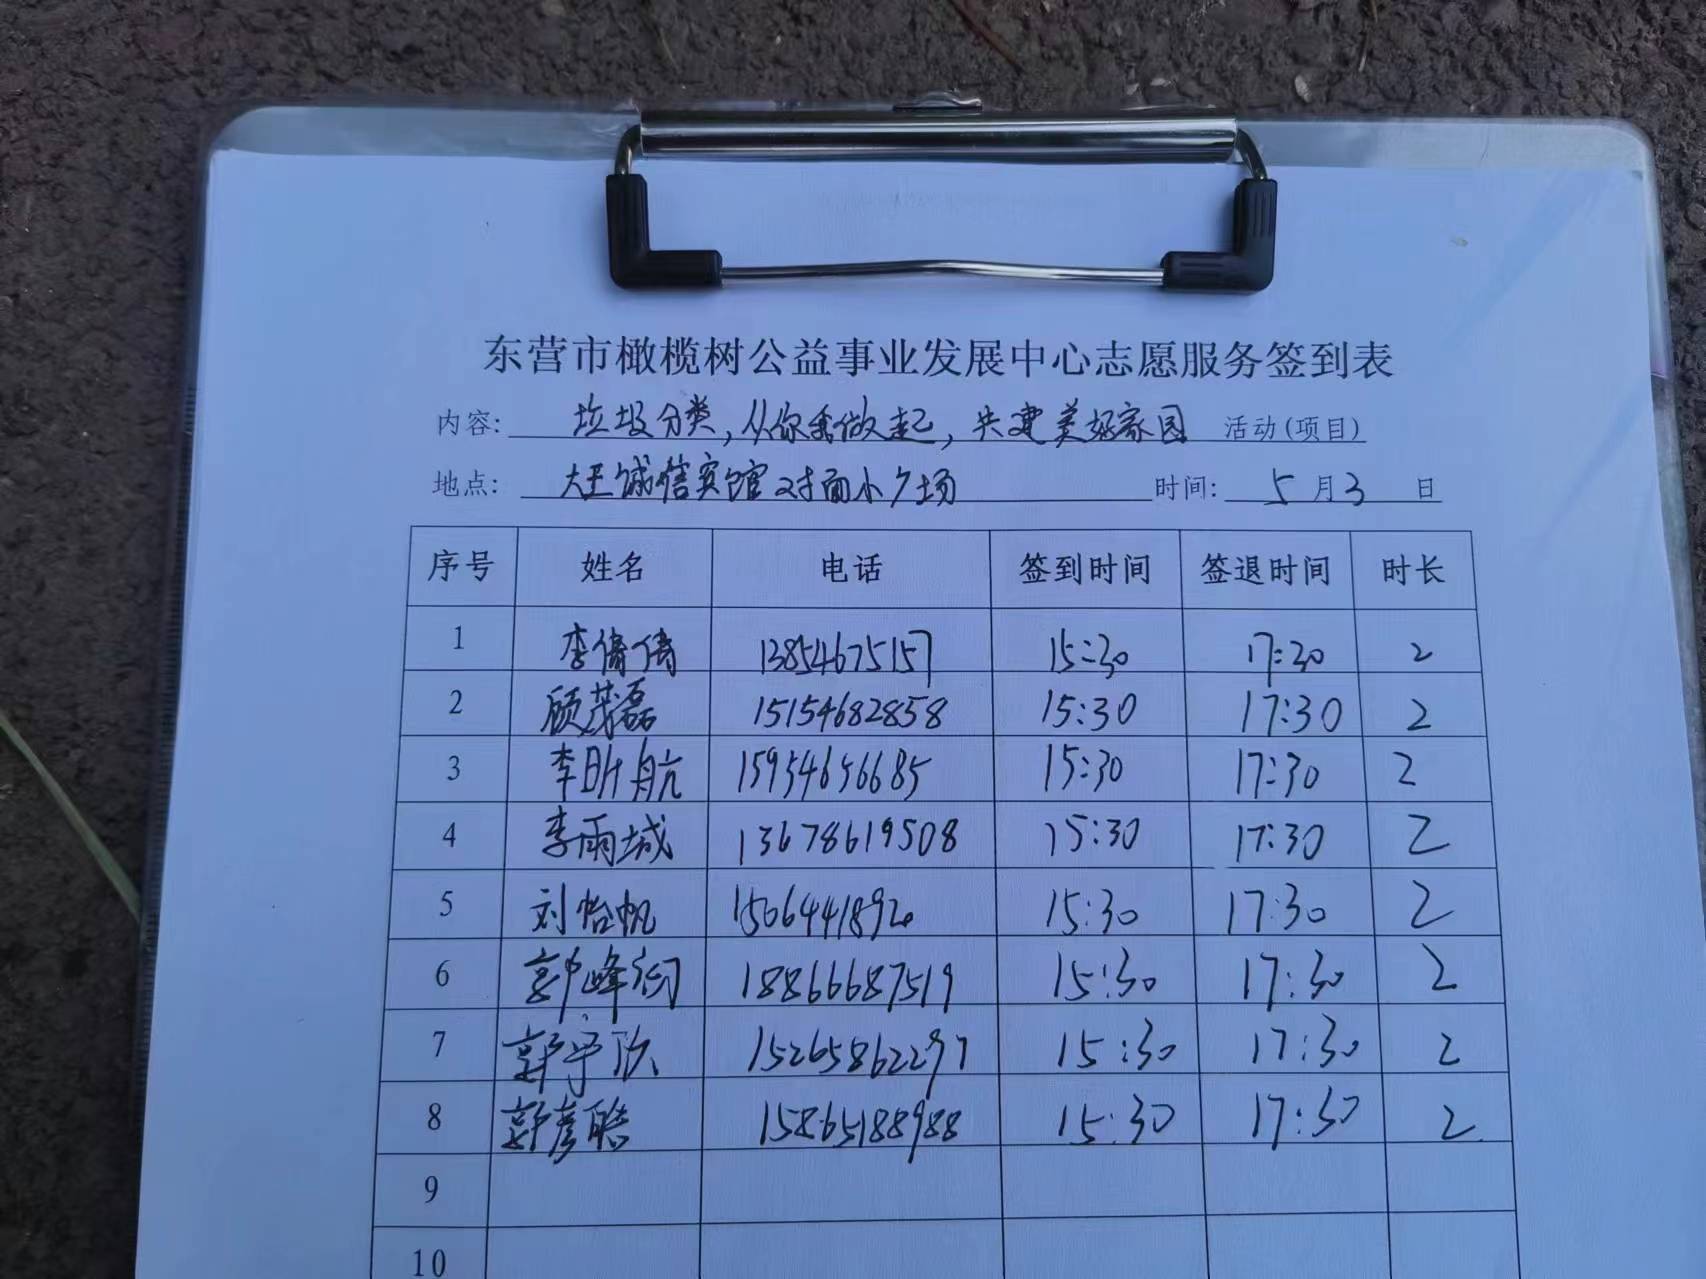 东营市橄榄树公益事业发展中心志愿服务签到表
内容: 垃圾分类,从你我做起,共建美好家园 活动(项目)
地点: 大王诚信宾馆对面小广场 时间: 5月3日
序号 姓名 电话 签到时间 签退时间 时长
1 李倩倩 13854675157 15:30 17:30 2
2 顾茂磊 15154682858 15:30 17:30 2
3 李昕航 15954656685 15:30 17:30 2
4 李雨城 13678619508 15:30 17:30 2
5 刘怡帆 15:30 17:30 2
6 郭峰 18866687519 15:30 17:30 2
7 郭宇欣 15265862297 15:30 17:30 2
8 郭彦聪 15865188988 15:30 17:30 2
9
10